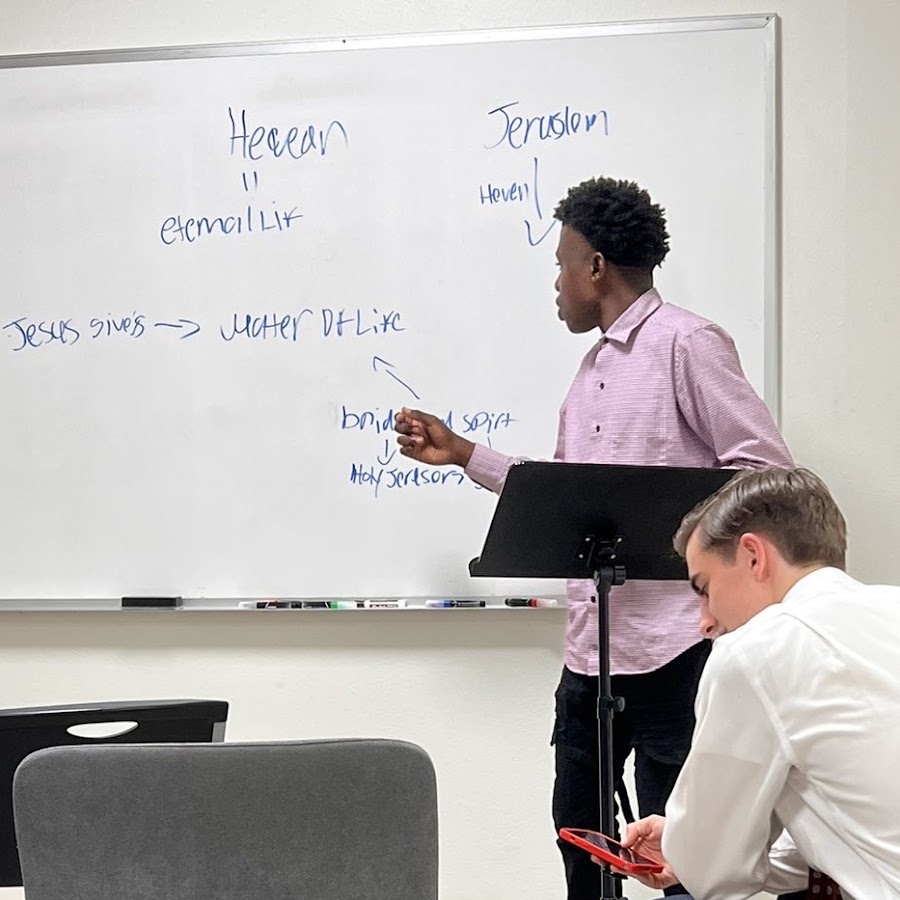 Heaean
"
eternal Lif
Jeruslem
Heven
Jesus give's → Water Of Life
spirt
Holy Jerusors